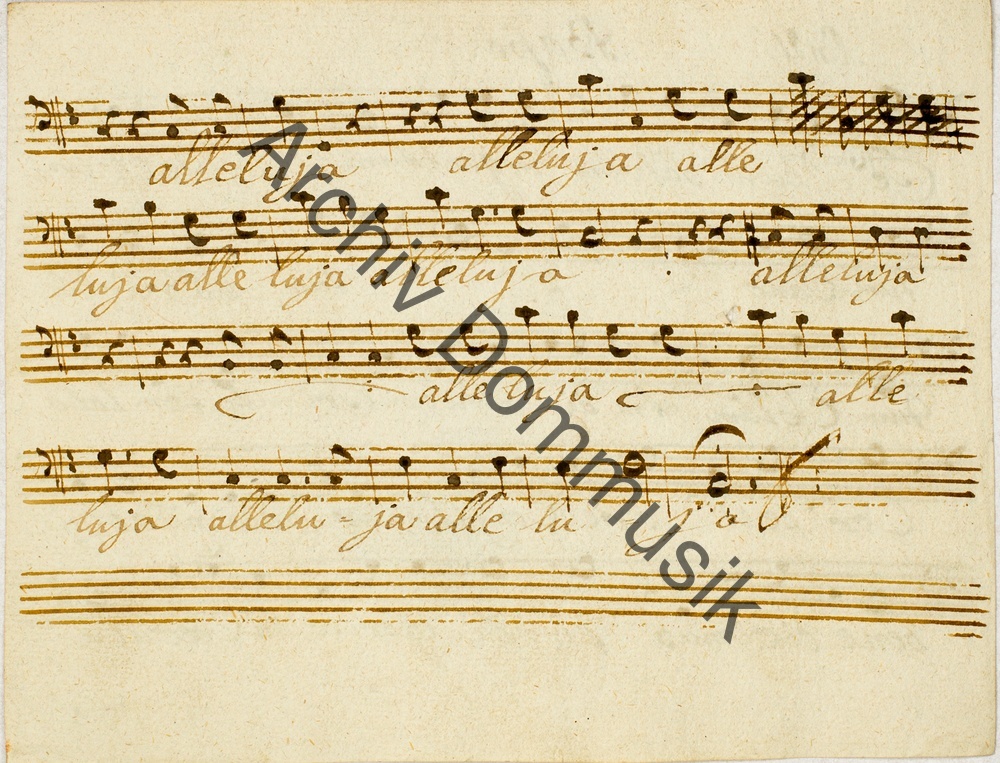 alleluja alleluja alle
luja alle luja alleluja alleluja
alleluja alle
luja allelu - ja alle lu - ja
Archiv Dommusik